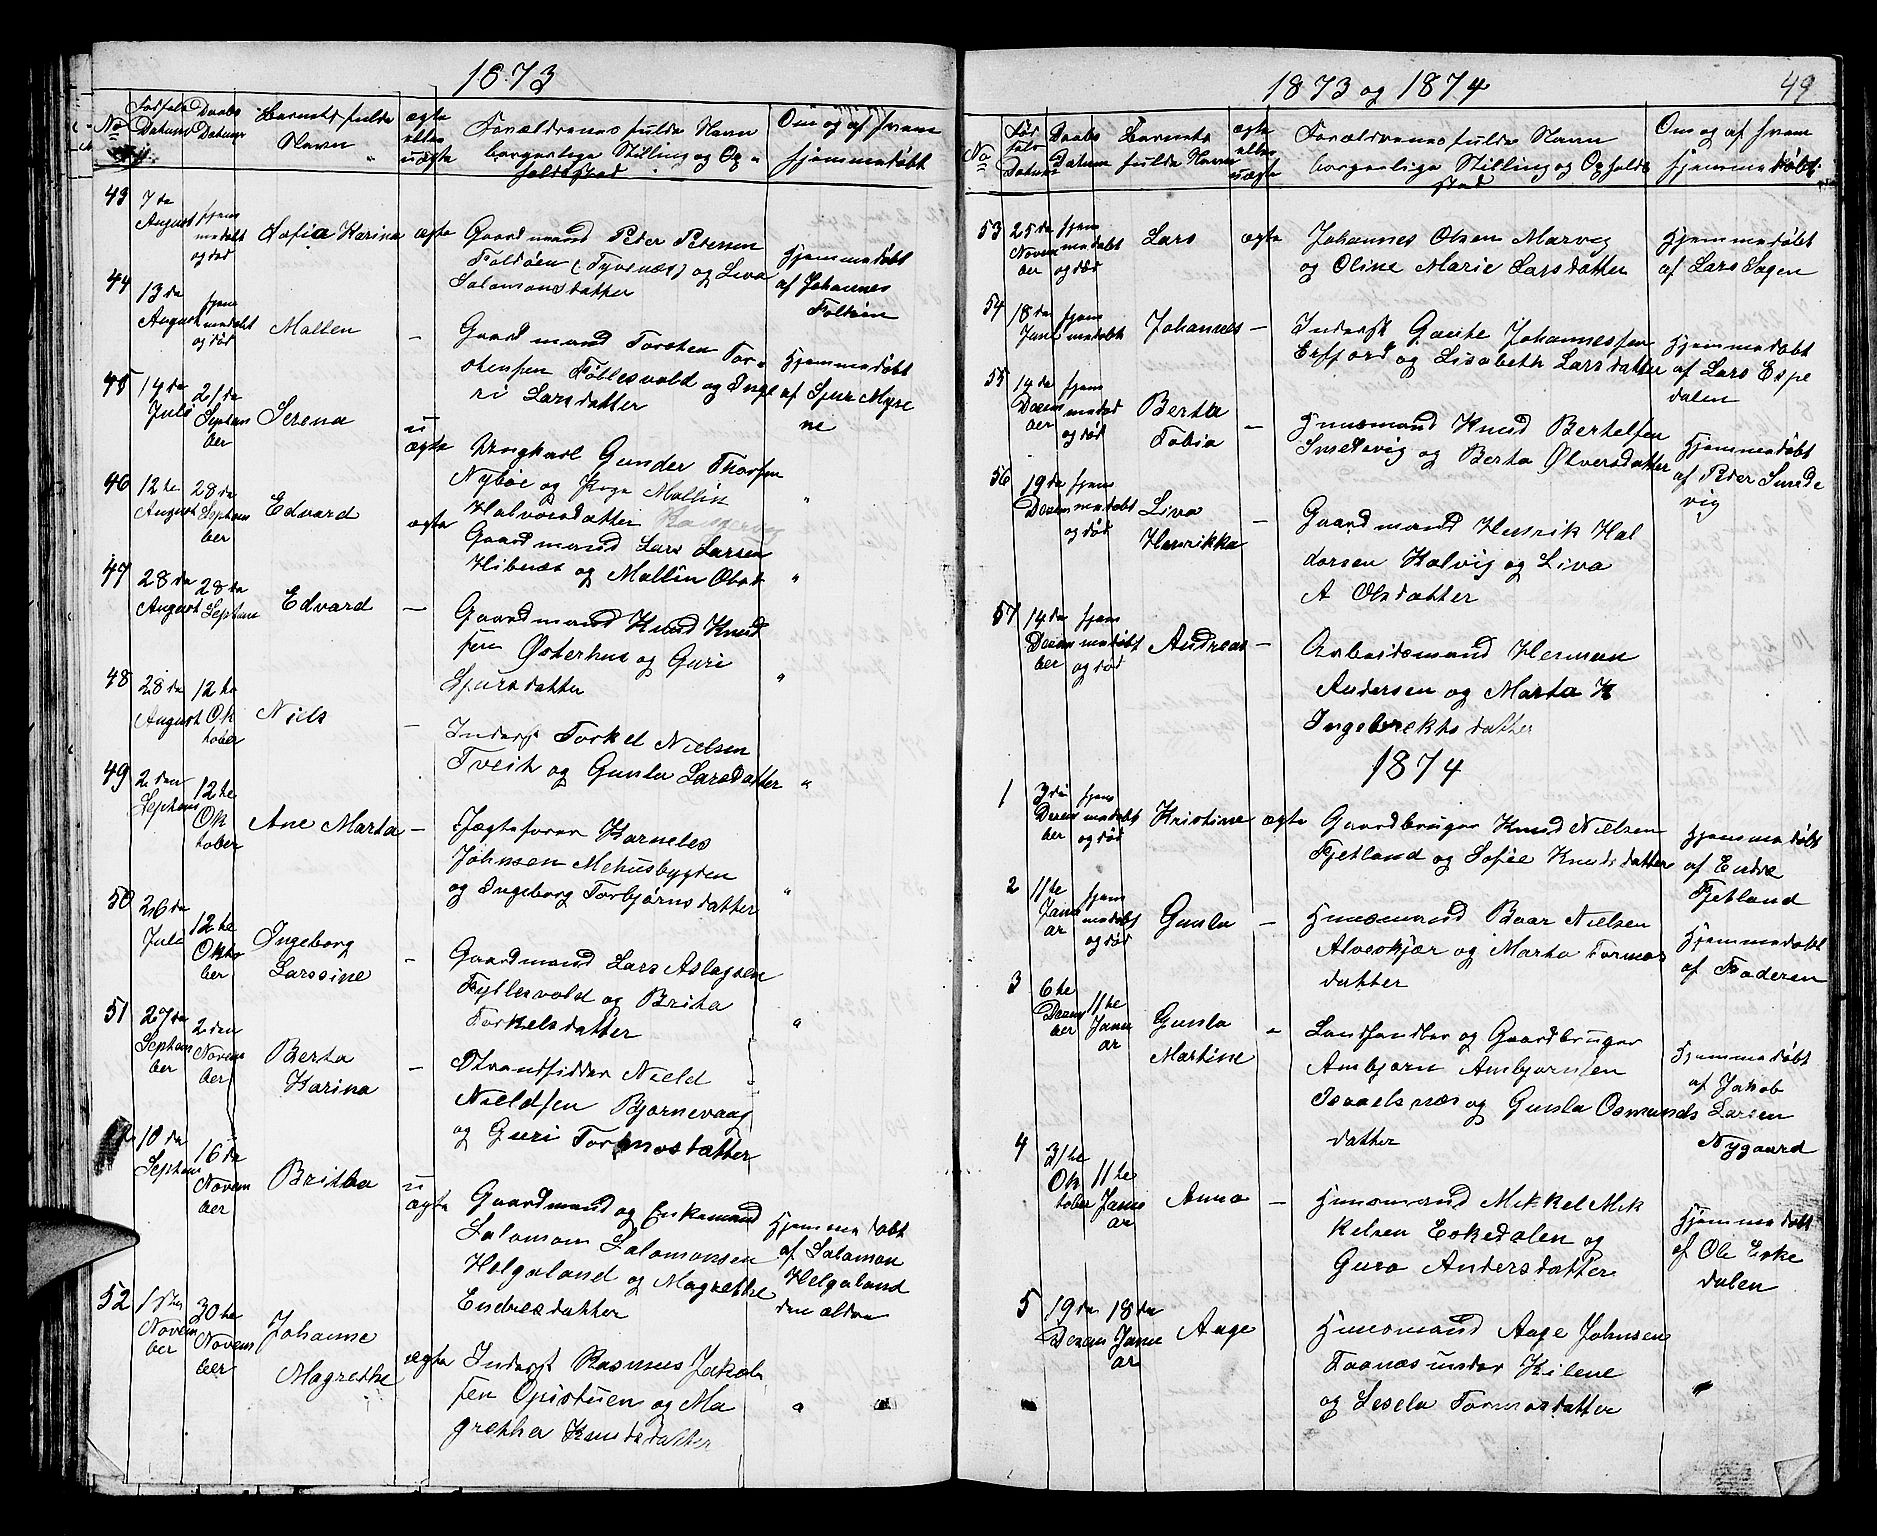 1873
No
Fødsels Datum
Daabs Datum
Barnets fulde Navn
ægte eller uægte
Forældrenes fulde Navn
borgerlige Stilling og Op-
holdssted
Om og af hvem
hjemmedøbt
43 7de August hjemmedøbt og død Sofia Karina ægte Gaardmand Peder Pedersen
Foldøen (Tyvenæs) og Liva
Salamonsdatter
Hjemmedøbt
af Johannes
Foldøen
44 13de August hjemmedøbt og død Mallen - Gaardmand Torsten Tor-
stensen Følbesvold og Inge
ri Larsdatter
Hjemmedøbt
af Sjur Myre
ne
45 14de Juli 21de September Serena uægte Ungkarl Gunder Thorsen
Nybøe og Pige Mallin
Halvorsdatter
"
46 12te August 28de September Edvard ægte Gaardmand Lars Larsen
Hibnæs og Mallin Olsd. "
47 28de August 28de Septem Edvard - Gaardmand Knud Knud
sen Østerhus og Guri
Sjursdatter "
48 28de August 12te Oktober Niels - Inderst Torkel Nielsen
Tveit og Gunla Larsdatter "
49 2den Septem 12te Oktober Ane Marta - Jægtefører Karneles
Johnsen Mehusbygden
og Ingeborg Torbjørnsdatter "
50 26de Juli 12te Oktober Ingeborg
Larssine - Gaardmand Lars Aslagsen
Fyllesvold og Brita
Torkelsdatter "
51 27de September 2den November Berta
Karina - Strandsidder Nield
Nieldsen Bjørnevaag
og Guri Tormosdatter
10de Septem 16de November Britha uægte Gaardmand og Enkemand
Salamon Salamonsen
Helgaland og Magrethe
Endresdatter
Hjemmedøbt
af Salamon
Helgaland
den ældre
52 November 30te November Johanne
Magrethe ægte Inderst Rasmus Jakob
sen Opistuen og Ma
grethe Knudsdatter "
1873 og 1874 49
No
Fødsels Datum
Daabs Datum
Barnets fulde Navn
ægte eller uægte
Forældrenes fulde Navn
borgerlige Stilling og Opholds
sted
Om og af hvem
hjemmedøbt
53 25de November hjemmedøbt og død Lars ægte Johannes Olsen Marvig
og Oline Marie Larsdatter
Hjemmedøbt
af Lars Sagen
54 18de Juni hjemmedøbt Johannes - Inderst Gaute Johannessen
Erfjord og Lisabeth Larsdatter
Hjemmedøbt
af Lars Espe
dalen
55 14de Dezember hjemmedød og død Berta
Tobia - Huusmand Knud Bertelsen
Insdevig og Berta Ølversdatter
Hjemmedøbt
af Peder Sunde
vig
56 19de Dezem hjemmedøbt og død Liva
Henrikka - Gaardmand Henrik Hal
dorsen Kalvig og Liva
A Olsdatter
57 14de Dezember hjemmedøbt og død Andreas - Arbeidsmand Herman
Andersen og Marta K
Ingebrektsdatter
1874
1 3die Dezember hjemmedøbt og død Kristine ægte Gaardbruger Knud Nielsen
Fjetland og Sofie Knudsdatter
Hjemmedøbt
af Endre
Fjetland
2 11te Januar hjemmedøbt og død Gunla - Huusmand Baar Nielsen
Alveskjær og Marta Tormos
datter
Hjemmedøbt
af Faderen
3 6te Dezember 11te Januar Gunla
Martine - Landhandler og Gaardbruger
Ambjørn Ambjørnsen
Isvaelsnæs og Gunla Osmunds
datter
Hjemmedøbt
af Jakob
Larsen
Nygaard
4 31te Oktober 11te Januar Anna - Huusmand Mikkel Mik
kelsen Eskedalen og
Guro Andersdatter
Hjemmedøbt
af Ole Eske
dalen
5 19de Dezem 18de Januar Aage Huusmand Aage Johnsen
Faanæs under Kilene
og Sesela Tormosdatter "